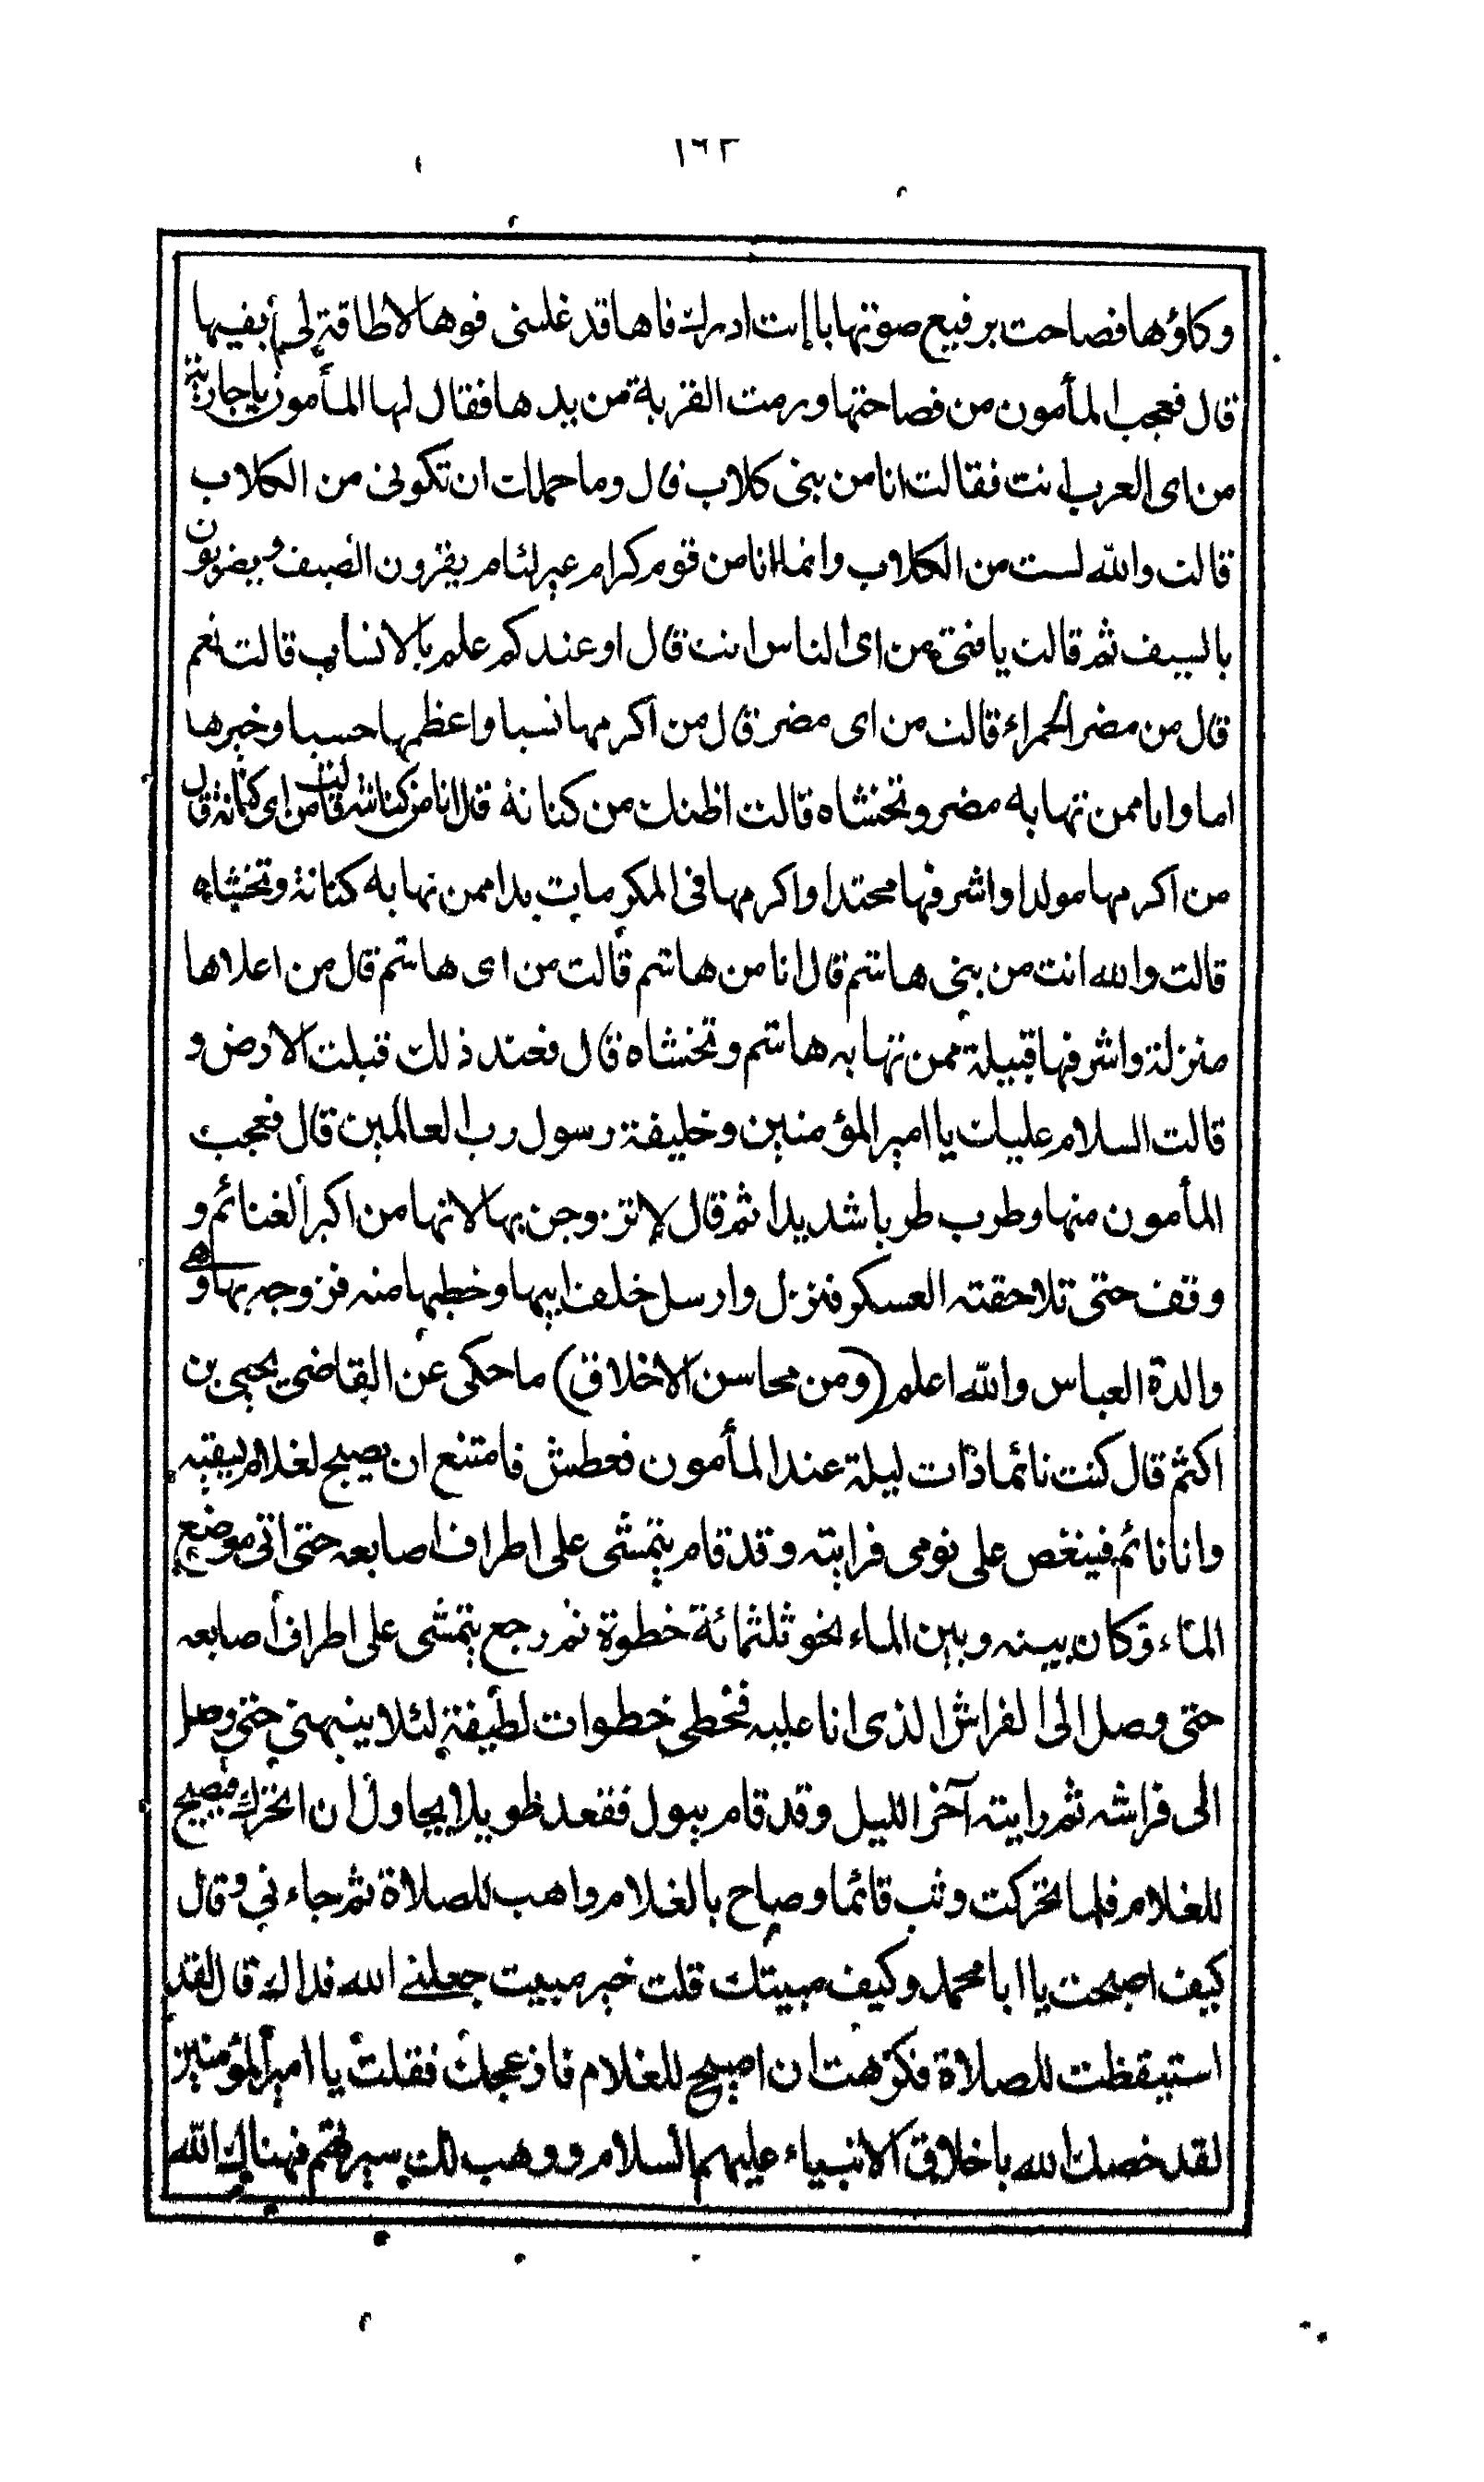 ١٦٢
وكاؤها فصاحت برفيع صوتها يا ابت ادرك فاها قد غلبني فوها لا طاقة لي بفيها
قال فعجب المأمون من فصاحتها ورمت القربة من يدها فقال لها المأمون يا جارية
من اى العرب انت فقالت انا من بنى كلاب قال وما حملك ان تكونى من الكلاب
قالت والله لست من الكلاب وانما انا من قوم كرام غير لئام يقرون الضيف ويضربون
بالسيف ثم قالت يا فتى من اى الناس انت قال اوعندكم علم بالانساب قالت نعم
قال من مضر الحمراء قالت من اى مضر قال من اكرمها نسبا واعظمها حسبا وخيرها
اما وابا ممن تهابه مضر وتخشاه قالت اظنك من كنانة قال انا من كنانة قالت من اى كنانة قال
من اكرمها مولدا واشرفها محتدا واكرمها فى المكرمات يدا ممن تهابه كنانة وتخشاه
قالت والله انت من بنى هاشم قال انا من هاشم قالت من اى هاشم قال من اعلاها
منزلة واشرفها قبيلة ممن تهابه هاشم وتخشاه قال فعند ذلك قبلت الارض و
قالت السلام عليك يا امير المؤمنين وخليفة رسول رب العالمين قال فعجب
المأمون منها وطرب طربا شديدا ثم قال لاتزوجن بها لانها من اكبر الغنائم و
وقف حتى تلاحقته العسكر فنزل وارسل خلف ابيها وخطبها منه فزوجه بها وهى
والدة العباس والله اعلم (ومن محاسن الاخلاق) ما حكى عن القاضى يحيى بن
اكثم قال كنت نائما ذات ليلة عند المأمون فعطش فامتنع ان يصيح لغلام يسقيه
وانا نائم فينغص على نومى فرايته وقد قام يتمشى على اطراف اصابعه حتى اتى موضع
الماء وكان بينه وبين الماء نحو ثلثمائة خطوة ثم رجع يتمشى على اطراف اصابعه
حتى وصل الى الفراش الذى انا عليه فخطى خطوات لطيفة لئلا ينبهنى حتى وصل
الى فراشه ثم رايته آخر الليل وقد قام يبول فقعد طويلا يحاول ان اتحرك فيصيح
للغلام فلما تحركت وثب قائما وصاح بالغلام واهب للصلاة ثم جاءنى وقال
كيف اصبحت يا ابا محمد وكيف مبيتك قلت خير مبيت جعلنى الله فداك قال لقد
استيقظت للصلاة فكرهت ان اصيح للغلام فازعجك فقلت يا امير المؤمنين
لقد خصك الله باخلاق الانبياء عليهم السلام ووهب لك سيرتهم فهناك الله